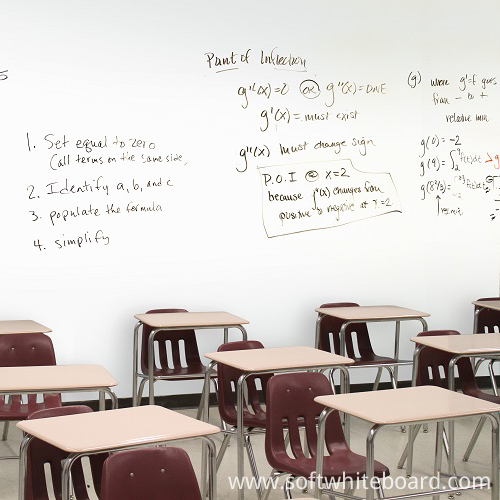 1. Set equal to zero
(all terms on the same side,
2. Identify a, b, and c
3. populate the formula
4. simplify
Point of Inflection
g''(x)=0 OR g''(x)=DNE
g'(x)= must exist
g''(x) must change sign
P.O.I @ x=2
because f''(x) changes from
positive to negative at x=2
(g) where g'=f goes
from - to +
relative min
g(0) = -2
g(9) =
rel. min
www.softwhiteboard.com